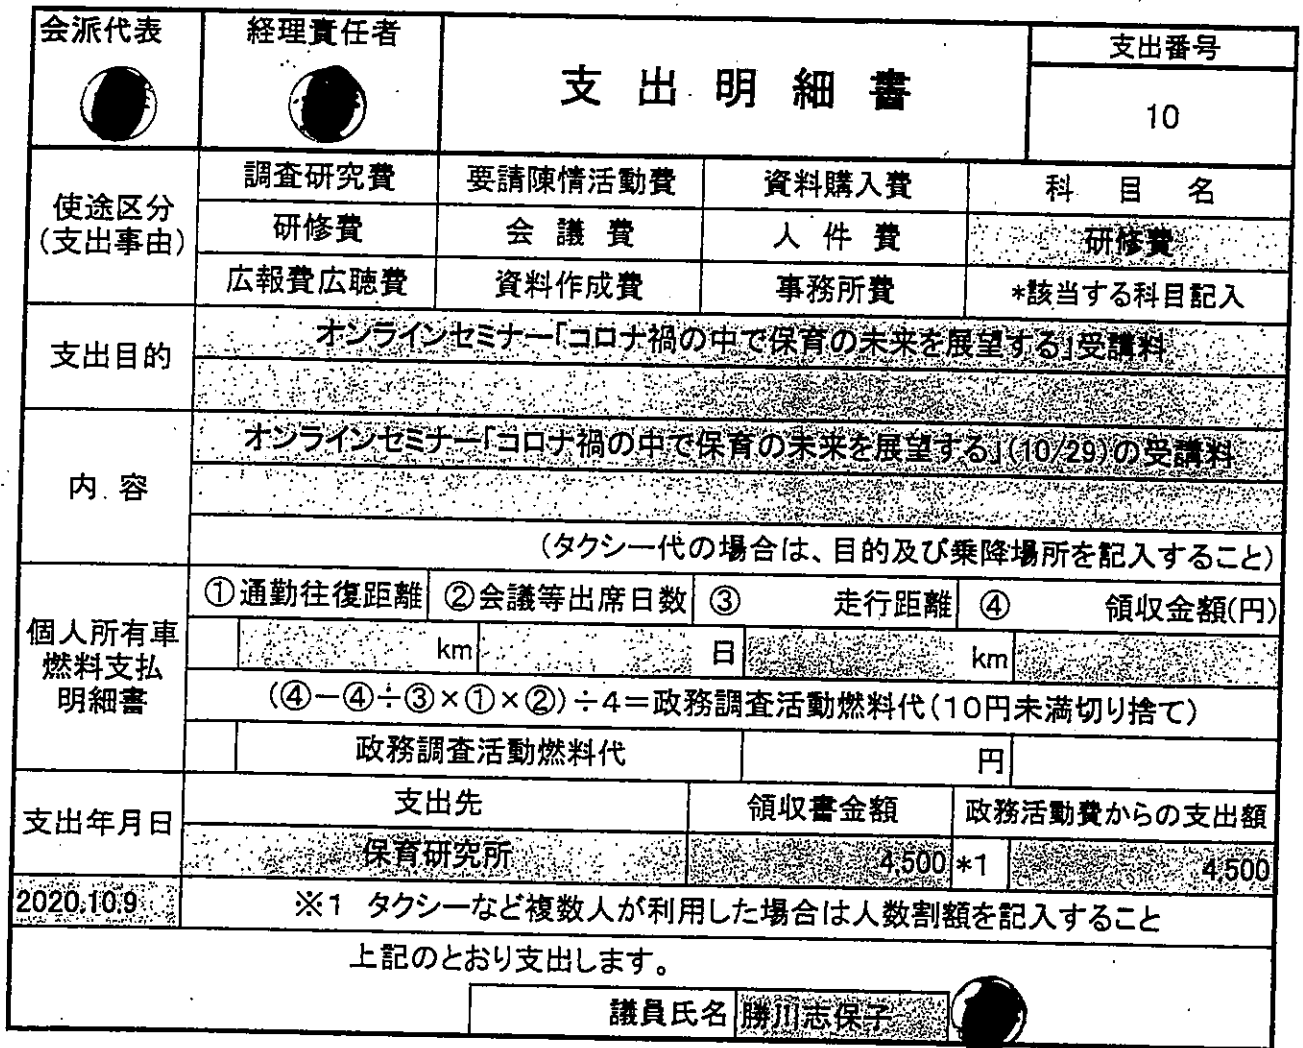 会派代表 経理責任者 支出明細書 支出番号
10
使途区分
(支出事由)
調査研究費 要請陳情活動費 資料購入費 科目名
研修費 会議費 人件費 研修費
広報費広聴費 資料作成費 事務所費 *該当する科目記入
支出目的 オンラインセミナー「コロナ禍の中で保育の未来を展望する」受講料
内容 オンラインセミナー「コロナ禍の中で保育の未来を展望する」(10/29)の受講料
(タクシー代の場合は、目的及び乗降場所を記入すること)
個人所有車
燃料支払
明細書
①通勤往復距離 ②会議等出席日数 ③ 走行距離 ④ 領収金額(円)
km 日 km
(④-④÷③×①×②)÷4=政務調査活動燃料代(10円未満切り捨て)
政務調査活動燃料代 円
支出年月日 支出先 領収書金額 政務活動費からの支出額
保育研究所 4,500 *1 4,500
2020.10.9 ※1 タクシーなど複数人が利用した場合は人数割額を記入すること
上記のとおり支出します。
議員氏名 勝川志保子